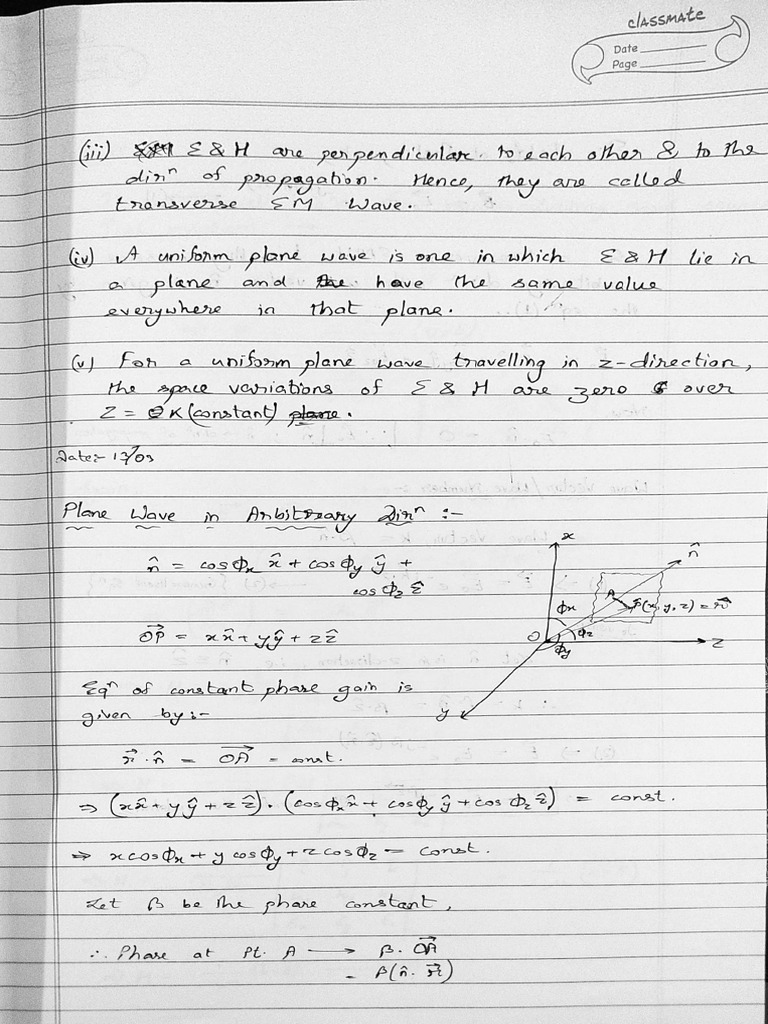 classmate
Date
Page
(iii) E & H are perpendicular to each other & to the
dirⁿ of propagation. Hence, they are called
transverse EM Wave.
(iv) A uniform plane wave is one in which E & H lie in
a plane and have the same value
everywhere in that plane.
(v) For a uniform plane wave travelling in z-direction,
the space variations of E & H are zero over
Z = K (constant) plane.
Date:- 13/03
Plane Wave in Arbitrary Dirⁿ :-
n̂ = cosΦx x̂ + cosΦy ŷ +
cosΦz ẑ
OP⃗ = xx̂ + yŷ + zẑ
x
n̂
A
Φx
P(x, y, z) = r⃗
O
Φz
Φy
z
y
Eqⁿ of constant phase gain is
given by:-
r⃗ . n̂ = OA⃗ = const.
⇒ (xx̂ + yŷ + zẑ) . (cosΦx x̂ + cosΦy ŷ + cosΦz ẑ) = const.
⇒ x cosΦx + y cosΦy + z cosΦz = const.
Let β be the phase constant,
∴ Phase at Pt. A ⟶ β. OA⃗
= β(n̂ . r⃗)